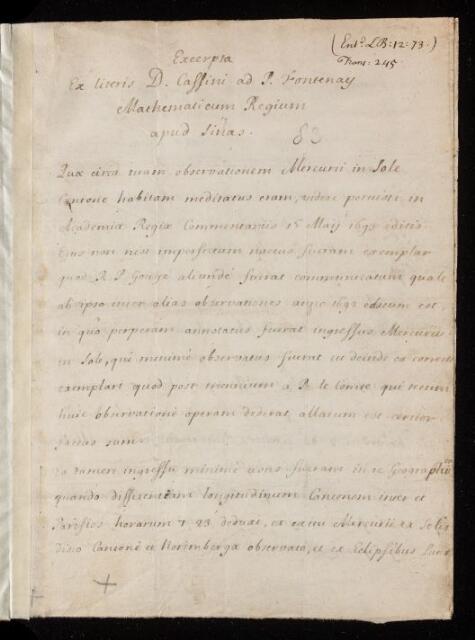 (Entd. LB: 12: 73.)
Trans: 245.
Excerpta
Ex literis D. Cassini ad P. Fontenay
Mathematicum Regium
apud Sinas.
83
Quæ circa tuam observationem Mercurii in Sole
Cantone habitam meditatus eram, videre potuisti in
Academiæ Regiæ Commentariis 15 Maij 1693 editis
non nisi imperfectum nactus fueram exemplar
quod R. P. Gouye aliunde fuerat communicatum quale
ab ipso inter alias observationes anno 1692 editum est
in quo perperam annotatus fuerat ingressus Mercurii
in Sole, qui minime observatus fuerat ut deinde ex correcto
exemplari quod post triennium a P. le Comte qui tecum
huic observationi operam dederat, allatum est certior
factus sum.
Eo tamen ingressu minime usus fueram in re Geographica
quando differentiam longitudinum Cantonem inter et
Parisios horarum 7 23 deduxi, ex exitu Mercurii ex Solis
disco Cantone et Norimbergæ observato, et ex Eclipsibus Lunæ